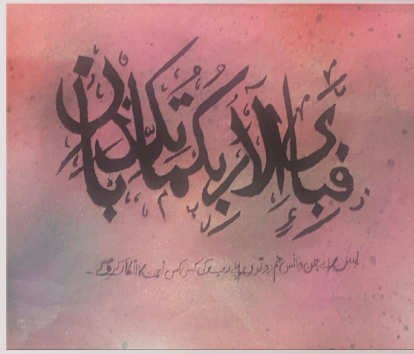 فَبِأَيِّ آلَاءِ رَبِّكُمَا تُكَذِّبَانِ
پس اے جن وانس تم اپنے رب کی کس کس نعمت کا انکار کرو گے